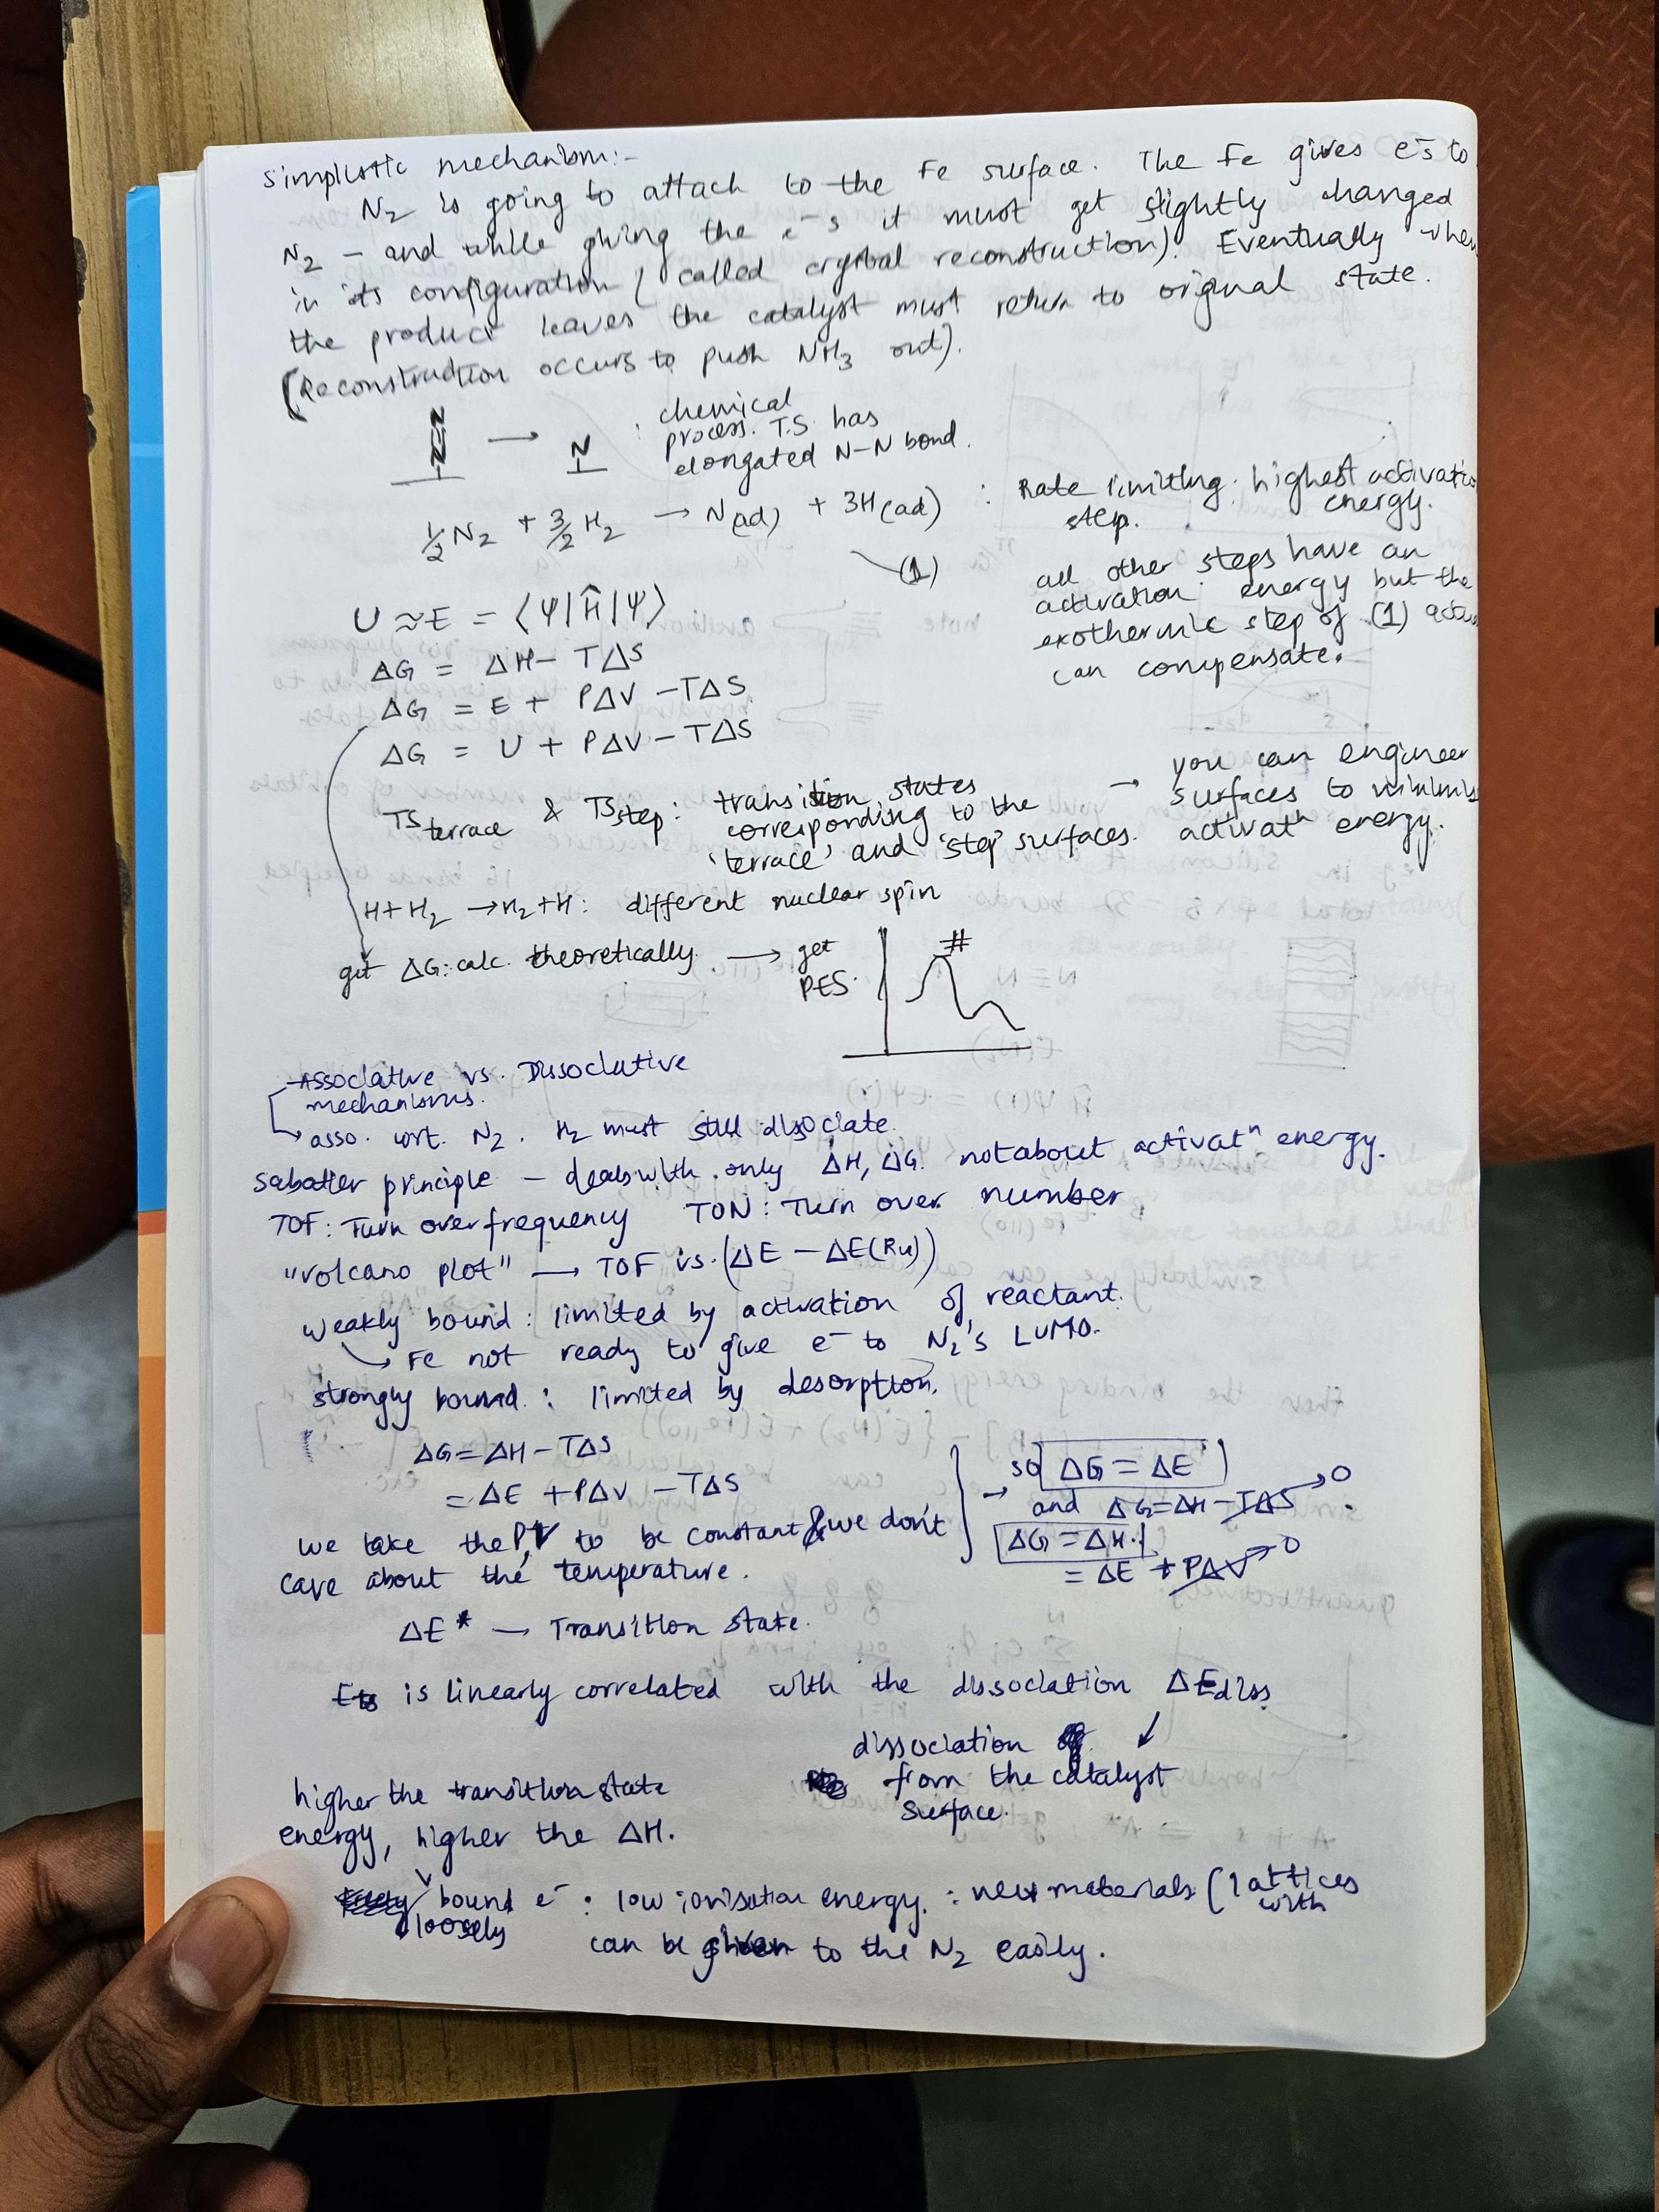 simplistic mechanism:-
N2 is going to attach to the Fe surface. The Fe gives e-s to
N2 – and while giving the e-s it must get slightly changed
in its configuration (called crystal reconstruction). Eventually when
the product leaves the catalyst must return to original state.
(Reconstruction occurs to push NH3 out).
N → N : chemical
process. T.S. has
elongated N–N bond.
½N2 + 3/2 H2 → N(ad) + 3H(ad) : Rate limiting highest activatio
step. energy.
(1)
all other steps have an
activation energy but the
exothermic step of (1)
can compensate.
U ≈ E = ⟨Ψ|Ĥ|Ψ⟩
ΔG = ΔH – TΔS
ΔG = E + PΔV – TΔS
ΔG = U + PΔV – TΔS
TSterrace & TSstep : transition states
corresponding to the
'terrace' and 'step' surfaces.
→ you can engineer
surfaces to minimis
activatn energy.
H+H2 → H2+H : different nuclear spin
get ΔG: calc. theoretically → get
PES. #
Associative vs. Dissociative
mechanisms.
asso. wrt. N2. H2 must still dissociate.
sabatier principle – deals with only ΔH, ΔG. not about activatn energy.
TOF: Turn over frequency TON: Turn over number
"volcano plot" → TOF vs. (ΔE – ΔE(Ru))
weakly bound : limited by activation of reactant.
→ Fe not ready to give e- to N2's LUMO.
strongly bound : limited by desorption.
ΔG = ΔH – TΔS
= ΔE + PΔV – TΔS
we take the P,V to be constant & we don't
care about the temperature.
→ so ΔG = ΔE
and ΔG = ΔH – TΔS → 0
ΔG = ΔH.
= ΔE + PΔV → 0
ΔE* – Transition state.
Ets is linearly correlated with the dissociation ΔEdiss
dissociation
from the catalyst
surface.
higher the transition state
energy, higher the ΔH.
loosely bound e- : low ionisation energy. : new materials (lattices
with
can be given to the N2 easily.